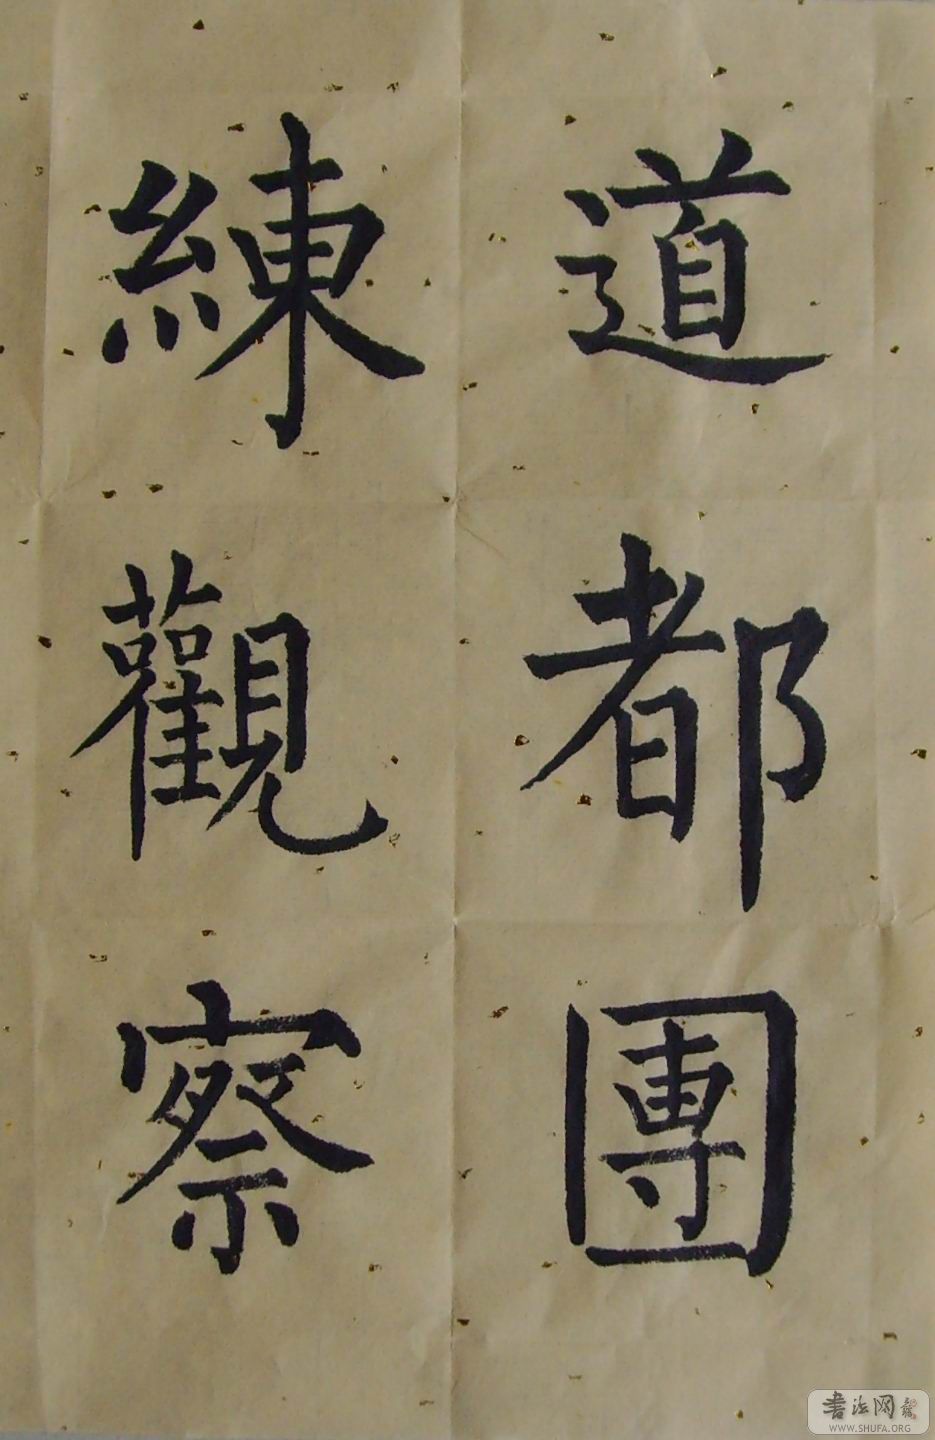 道都團
練觀察
書法网
WWW.SHUFA.ORG